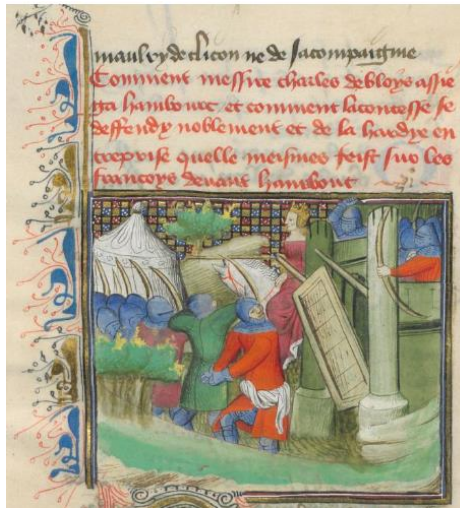 maulvy de clicon ne de sa compaignie
Comment messire charles de bloys assie
ga hambourc et comment la contesse se
deffendy noblement et de la hardye en
treprise quelle meismes feist sus les
francoys deuant hambout